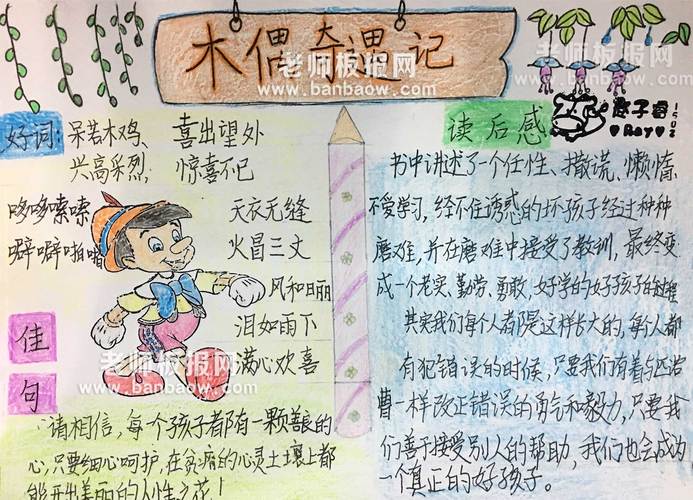 木偶奇遇记
老师板报网
www.banbaow.com
子睿
1502
Ray
好词:
呆若木鸡、 喜出望外
兴高采烈, 惊喜不已
哆哆嗦嗦 天衣无缝
噼噼啪啪 火冒三丈
风和日丽
泪如雨下
满心欢喜
佳句
请相信,每个孩子都有一颗善良的
心,只要细心呵护,在贫瘠的心灵土壤上都
能开出美丽的人性之花!
读后感
书中讲述了一个任性、撒谎、懒惰、
不爱学习,经不住诱惑的坏孩子经过种种
磨难,并在磨难中接受了教训,最终变
成一个老实、勤劳、勇敢,好学的好孩子的过程
其实我们每个人都是这样长大的,每个人都
有犯错误的时候,只要我们有着与匹诺
曹一样改正错误的勇气和毅力,只要我
们善于接受别人的帮助,我们也会成为
一个真正的好孩子。
老师板报网
www.banbaow.com
老师板报网
www.banbaow.com
老师板报网
www.banbaow.com